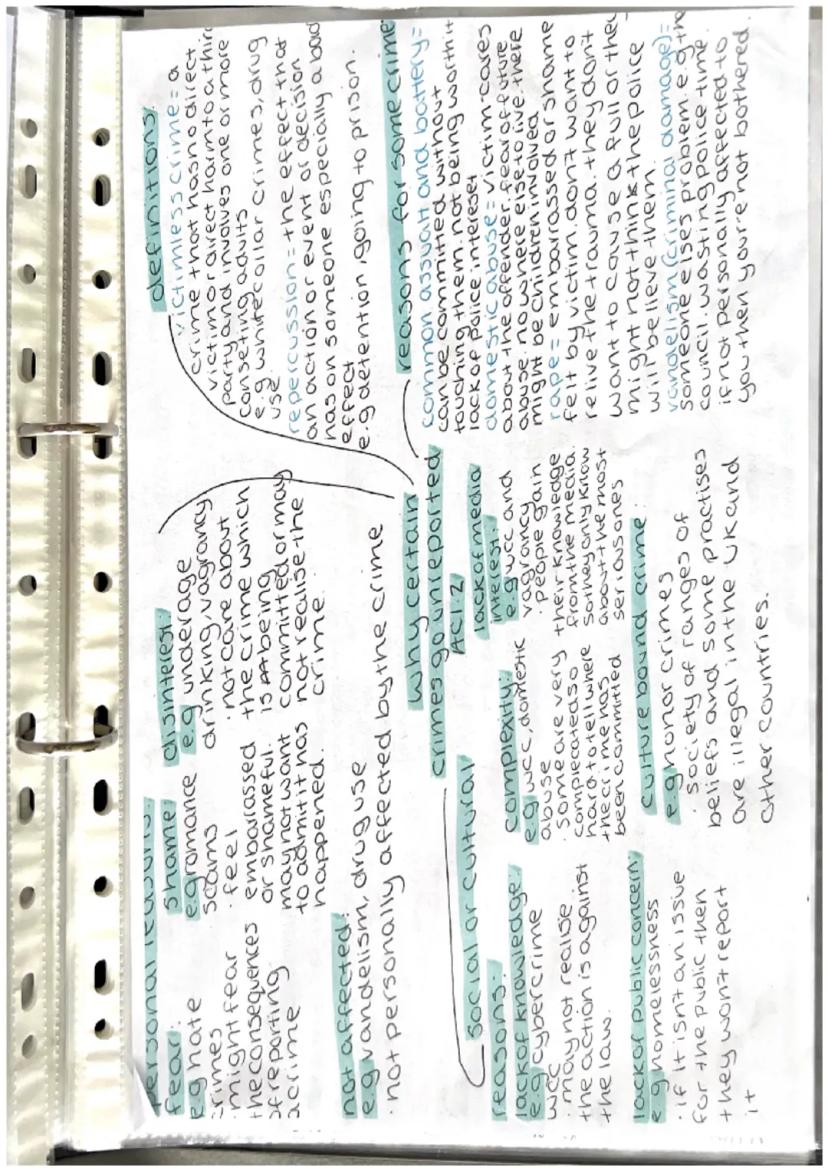 personal reasons:
fear:
e.g hate
crimes
· might fear
the consequences
of reporting
a crime
shame
e.g romance
scams
· feel
embarassed
or shameful.
may not want
to admit it has
happened.
disinterest:
e.g underage
drinking, vagrancy
· not care about
the crime which
is being
committed or may
not realise the
crime.
not affected:
e.g vandelism, drug use
· not personally affected by the crime
definitions:
victimless crime = a
crime that has no direct
victim or direct harm to a third
party and involves one or more
conseting adults
e.g white collar crimes, drug
use.
repercussion = the effect that
an action or event or decision
has on someone especially a bad
effect
e.g detention, going to prison.
why certain
crimes go unreported
AC1.2
reasons for some crime
common assualt and battery =
can be committed without
touching them. not being worth it
lack of police intereset
domestic abuse = victim cares
about the offender. fear of future
abuse. no where else to live. there
might be children involved
rape = embarrassed or shame
felt by victim. don't want to
relive the trauma. they don't
want to cause a full or they
might not think the police
will believe them.
vandelism (criminal damage) =
someone elses problem. e.g the
council. wasting police time.
if not personally affected to
you then you're not bothered.
social or cultural
reasons:
lack of knowledge:
e.g cybercrime
wcc
· may not realise
the action is against
the law.
complexity:
e.g wcc, domestic
abuse
· some are very
complecated so
hard to tell where
the crime has
been committed
lack of media
interest:
e.g wcc and
vagrancy
· people gain
their knowledge
from the media.
so they only know
about the most
serious ones
lack of public concern:
e.g homelessness
· if it isn't an issue
for the public then
they won't report
it
culture bound crime:
e.g honor crimes
society of ranges of
beliefs and some practises
are illegal in the UK and
other countries.